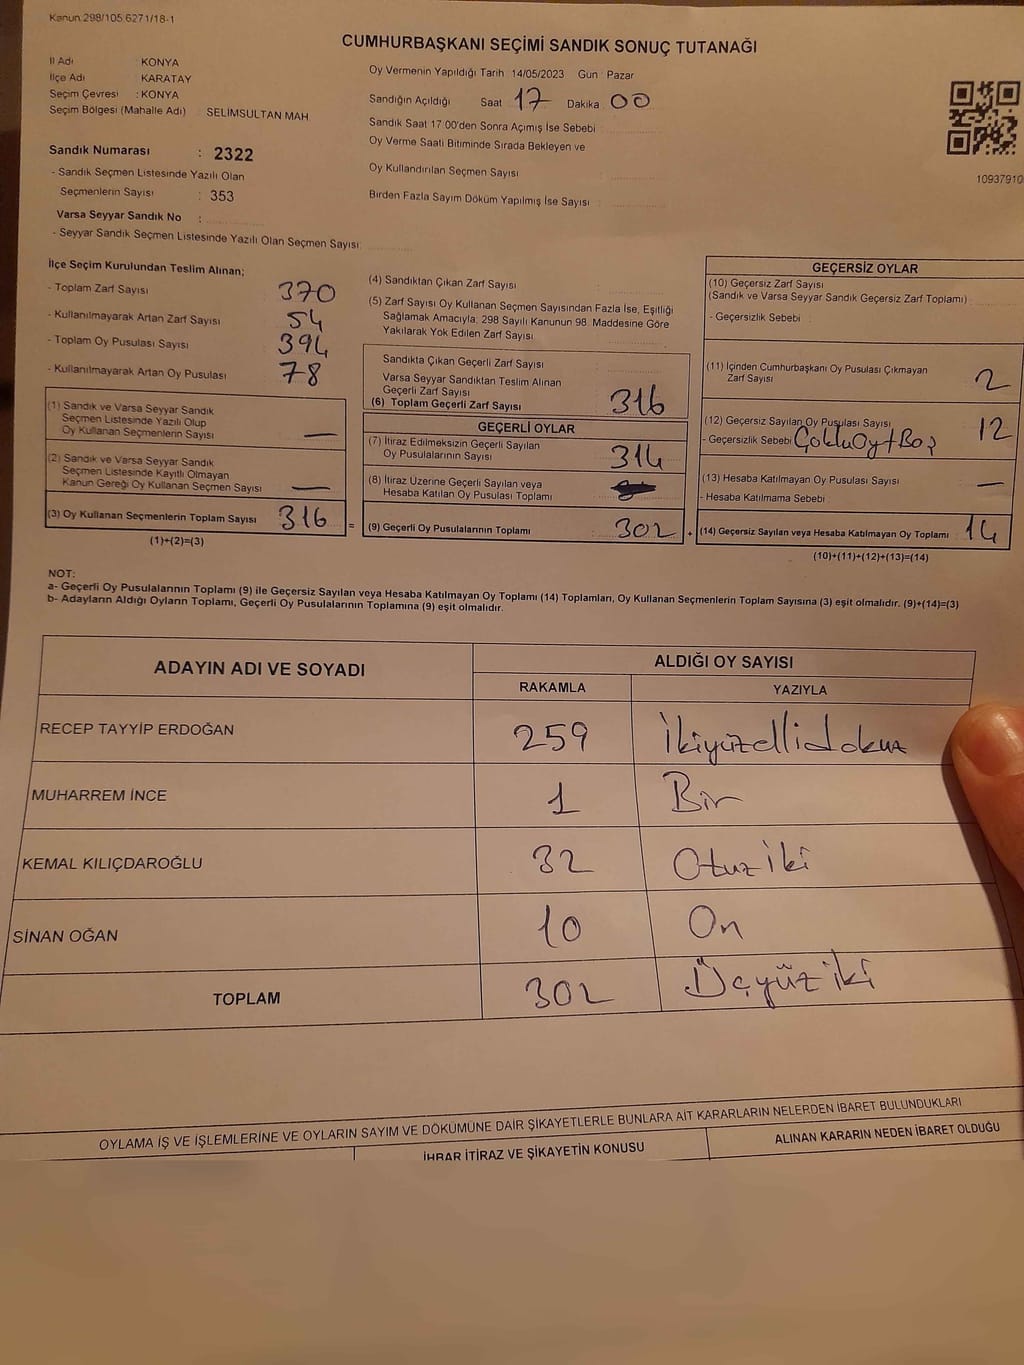 Kanun 298/105 6271/18-1
CUMHURBAŞKANI SEÇİMİ SANDIK SONUÇ TUTANAĞI
İl Adı : KONYA
İlçe Adı KARATAY
Seçim Çevresi : KONYA
Seçim Bölgesi (Mahalle Adı) SELİMSULTAN MAH
Oy Vermenin Yapıldığı Tarih 14/05/2023 Gün Pazar
Sandığın Açıldığı Saat 17 Dakika 00
Sandık Saat 17:00'den Sonra Açımış İse Sebebi
Oy Verme Saati Bitiminde Sırada Bekleyen ve
Oy Kullandırılan Seçmen Sayısı
Birden Fazla Sayım Döküm Yapılmış İse Sayısı
10937910
Sandık Numarası : 2322
- Sandık Seçmen Listesinde Yazılı Olan
Seçmenlerin Sayısı : 353
Varsa Seyyar Sandık No :
- Seyyar Sandık Seçmen Listesinde Yazılı Olan Seçmen Sayısı:
İlçe Seçim Kurulundan Teslim Alınan;
- Toplam Zarf Sayısı 370
- Kullanılmayarak Artan Zarf Sayısı 54
- Toplam Oy Pusulası Sayısı 394
- Kullanılmayarak Artan Oy Pusulası 78
(1) Sandık ve Varsa Seyyar Sandık
Seçmen Listesinde Yazılı Olup
Oy Kullanan Seçmenlerin Sayısı —
(2) Sandık ve Varsa Seyyar Sandık
Seçmen Listesinde Kayıtlı Olmayan
Kanun Gereği Oy Kullanan Seçmen Sayısı —
(3) Oy Kullanan Seçmenlerin Toplam Sayısı 316
(1)+(2)=(3)
=
(4) Sandıktan Çıkan Zarf Sayısı :
(5) Zarf Sayısı Oy Kullanan Seçmen Sayısından Fazla İse, Eşitliği
Sağlamak Amacıyla; 298 Sayılı Kanunun 98. Maddesine Göre
Yakılarak Yok Edilen Zarf Sayısı
Sandıkta Çıkan Geçerli Zarf Sayısı
Varsa Seyyar Sandıktan Teslim Alınan
Geçerli Zarf Sayısı
(6) Toplam Geçerli Zarf Sayısı 316
GEÇERLİ OYLAR
(7) İtiraz Edilmeksizin Geçerli Sayılan
Oy Pusulalarının Sayısı 314
(8) İtiraz Üzerine Geçerli Sayılan veya
Hesaba Katılan Oy Pusulası Toplamı
(9) Geçerli Oy Pusulalarının Toplamı : 302
+
GEÇERSİZ OYLAR
(10) Geçersiz Zarf Sayısı
(Sandık ve Varsa Seyyar Sandık Geçersiz Zarf Toplamı)
- Geçersizlik Sebebi
(11) İçinden Cumhurbaşkanı Oy Pusulası Çıkmayan
Zarf Sayısı 2
(12) Geçersiz Sayılan Oy Pusulası Sayısı 12
- Geçersizlik Sebebi Çoklu Oy + Boş
(13) Hesaba Katılmayan Oy Pusulası Sayısı —
- Hesaba Katılmama Sebebi
(14) Geçersiz Sayılan veya Hesaba Katılmayan Oy Toplamı 14
(10)+(11)+(12)+(13)=(14)
NOT:
a- Geçerli Oy Pusulalarının Toplamı (9) ile Geçersiz Sayılan veya Hesaba Katılmayan Oy Toplamı (14) Toplamları, Oy Kullanan Seçmenlerin Toplam Sayısına (3) eşit olmalıdır. (9)+(14)=(3)
b- Adayların Aldığı Oyların Toplamı, Geçerli Oy Pusulalarının Toplamına (9) eşit olmalıdır.
ADAYIN ADI VE SOYADI ALDIĞI OY SAYISI
RAKAMLA YAZIYLA
RECEP TAYYİP ERDOĞAN 259 İkiyüzellidokuz
MUHARREM İNCE 1 Bir
KEMAL KILIÇDAROĞLU 32 Otuz iki
SİNAN OĞAN 10 On
TOPLAM 302 Üçyüz iki
OYLAMA İŞ VE İŞLEMLERİNE VE OYLARIN SAYIM VE DÖKÜMÜNE DAİR ŞİKAYETLERLE BUNLARA AİT KARARLARIN NELERDEN İBARET BULUNDUKLARI
İHBAR İTİRAZ VE ŞİKAYETİN KONUSU ALINAN KARARIN NEDEN İBARET OLDUĞU